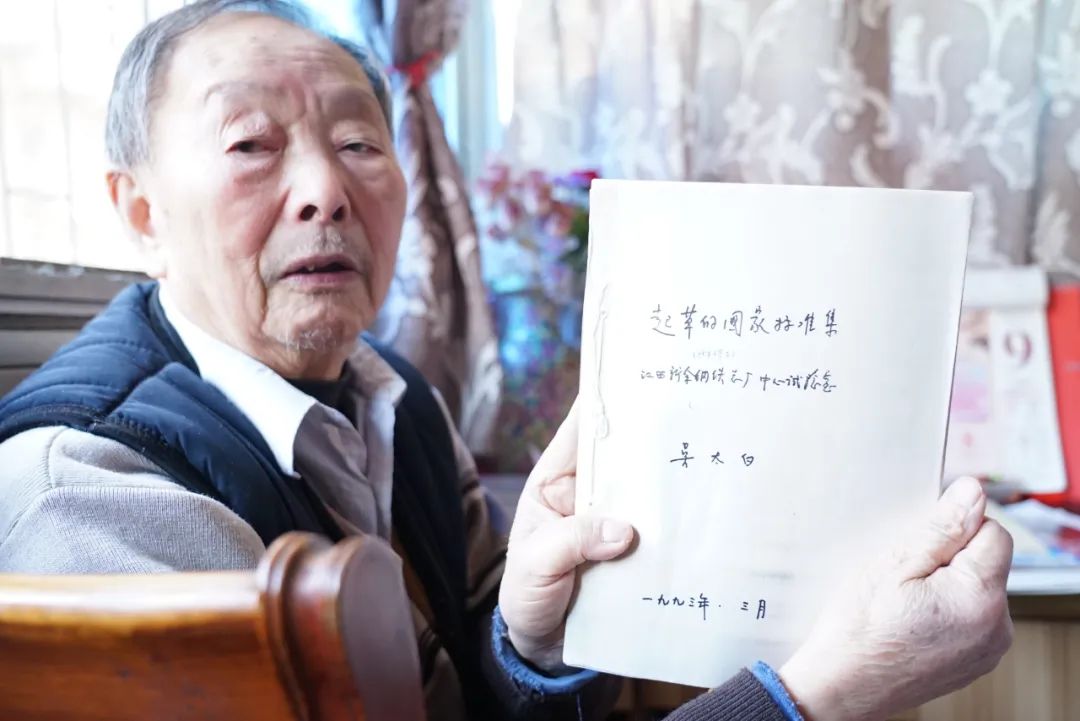 起草的国家标准集
江西新余钢铁总厂中心试验室
吴太白
一九九三年.三月
9